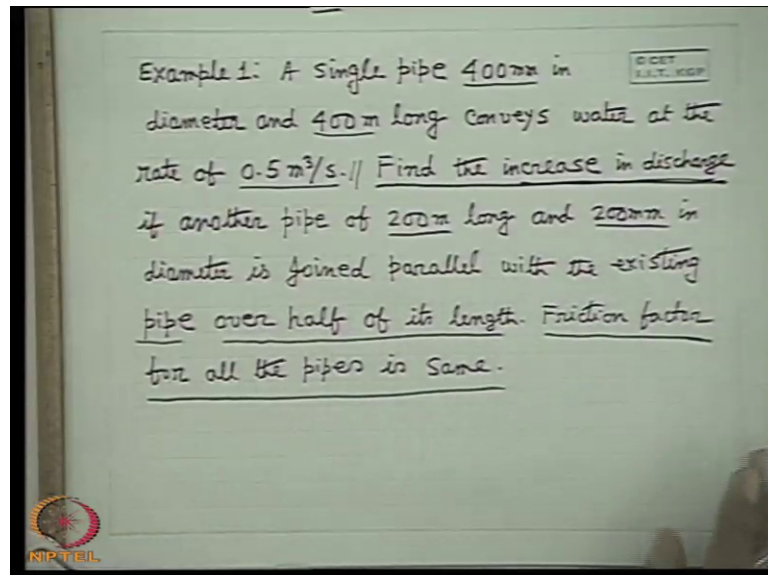 Example 1: A single pipe 400mm in
diameter and 400m long conveys water at the
rate of 0.5 m³/s.// Find the increase in discharge
if another pipe of 200m long and 200mm in
diameter is joined parallel with the existing
pipe over half of its length. Friction factor
for all the pipes is same.
© CET
I.I.T. KGP
NPTEL